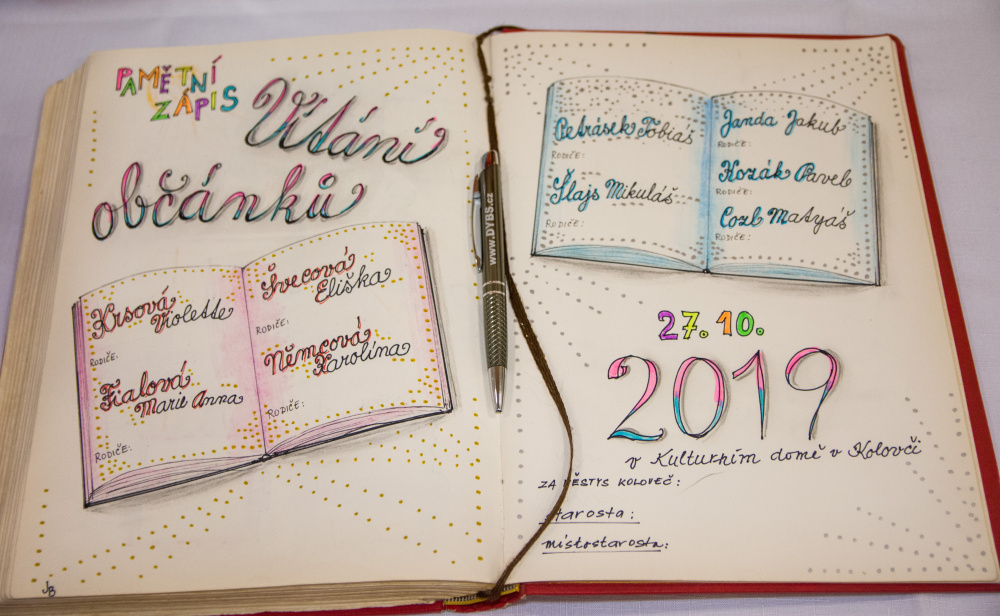 PAMĚTNÍ
ZÁPIS
Vítání
občánků
Krsová
Violette
RODIČE:
Fialová
Marie Anna
RODIČE:
Švecová
Eliška
RODIČE:
Němcová
Karolína
RODIČE:
JB
www.DYBS.cz
Petrásek Tobiáš
RODIČE:
Šlajs Mikuláš
RODIČE:
Janda Jakub
RODIČE:
Kozák Pavel
RODIČE:
Cozl Matyáš
RODIČE:
27. 10.
2019
v Kulturním domě v Kolovči
ZA MĚSTYS KOLOVEČ:
starosta:
místostarosta: